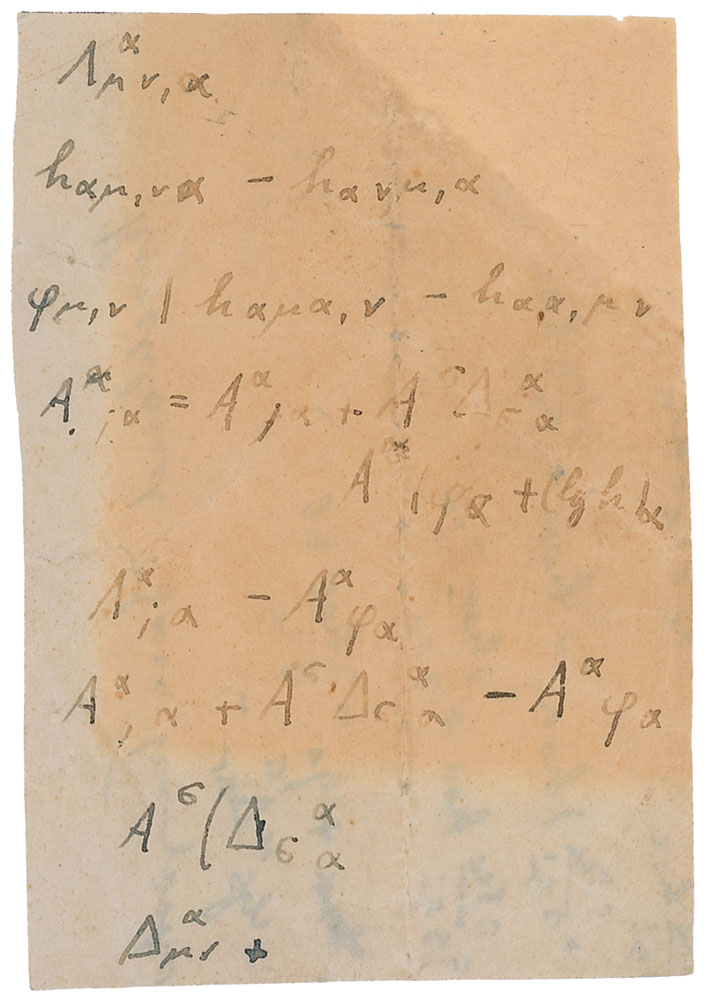 Λ^α_{μν,α}
h_{αμ,να} − h_{αν,μ,α}
φ_{μ,ν} | h_{αμα,ν} − h_{αα,μν}
A^α_{;α} = A^α_{,α} + A^σ Δ_σ^α_α
A^α (φ_α + (lg h)_α
A^α_{;α} − A^α φ_α
A^α_{,α} + A^σ Δ_σ^α_α − A^α φ_α
A^σ (Δ_σ^α_α
Δ_{μν}^α +